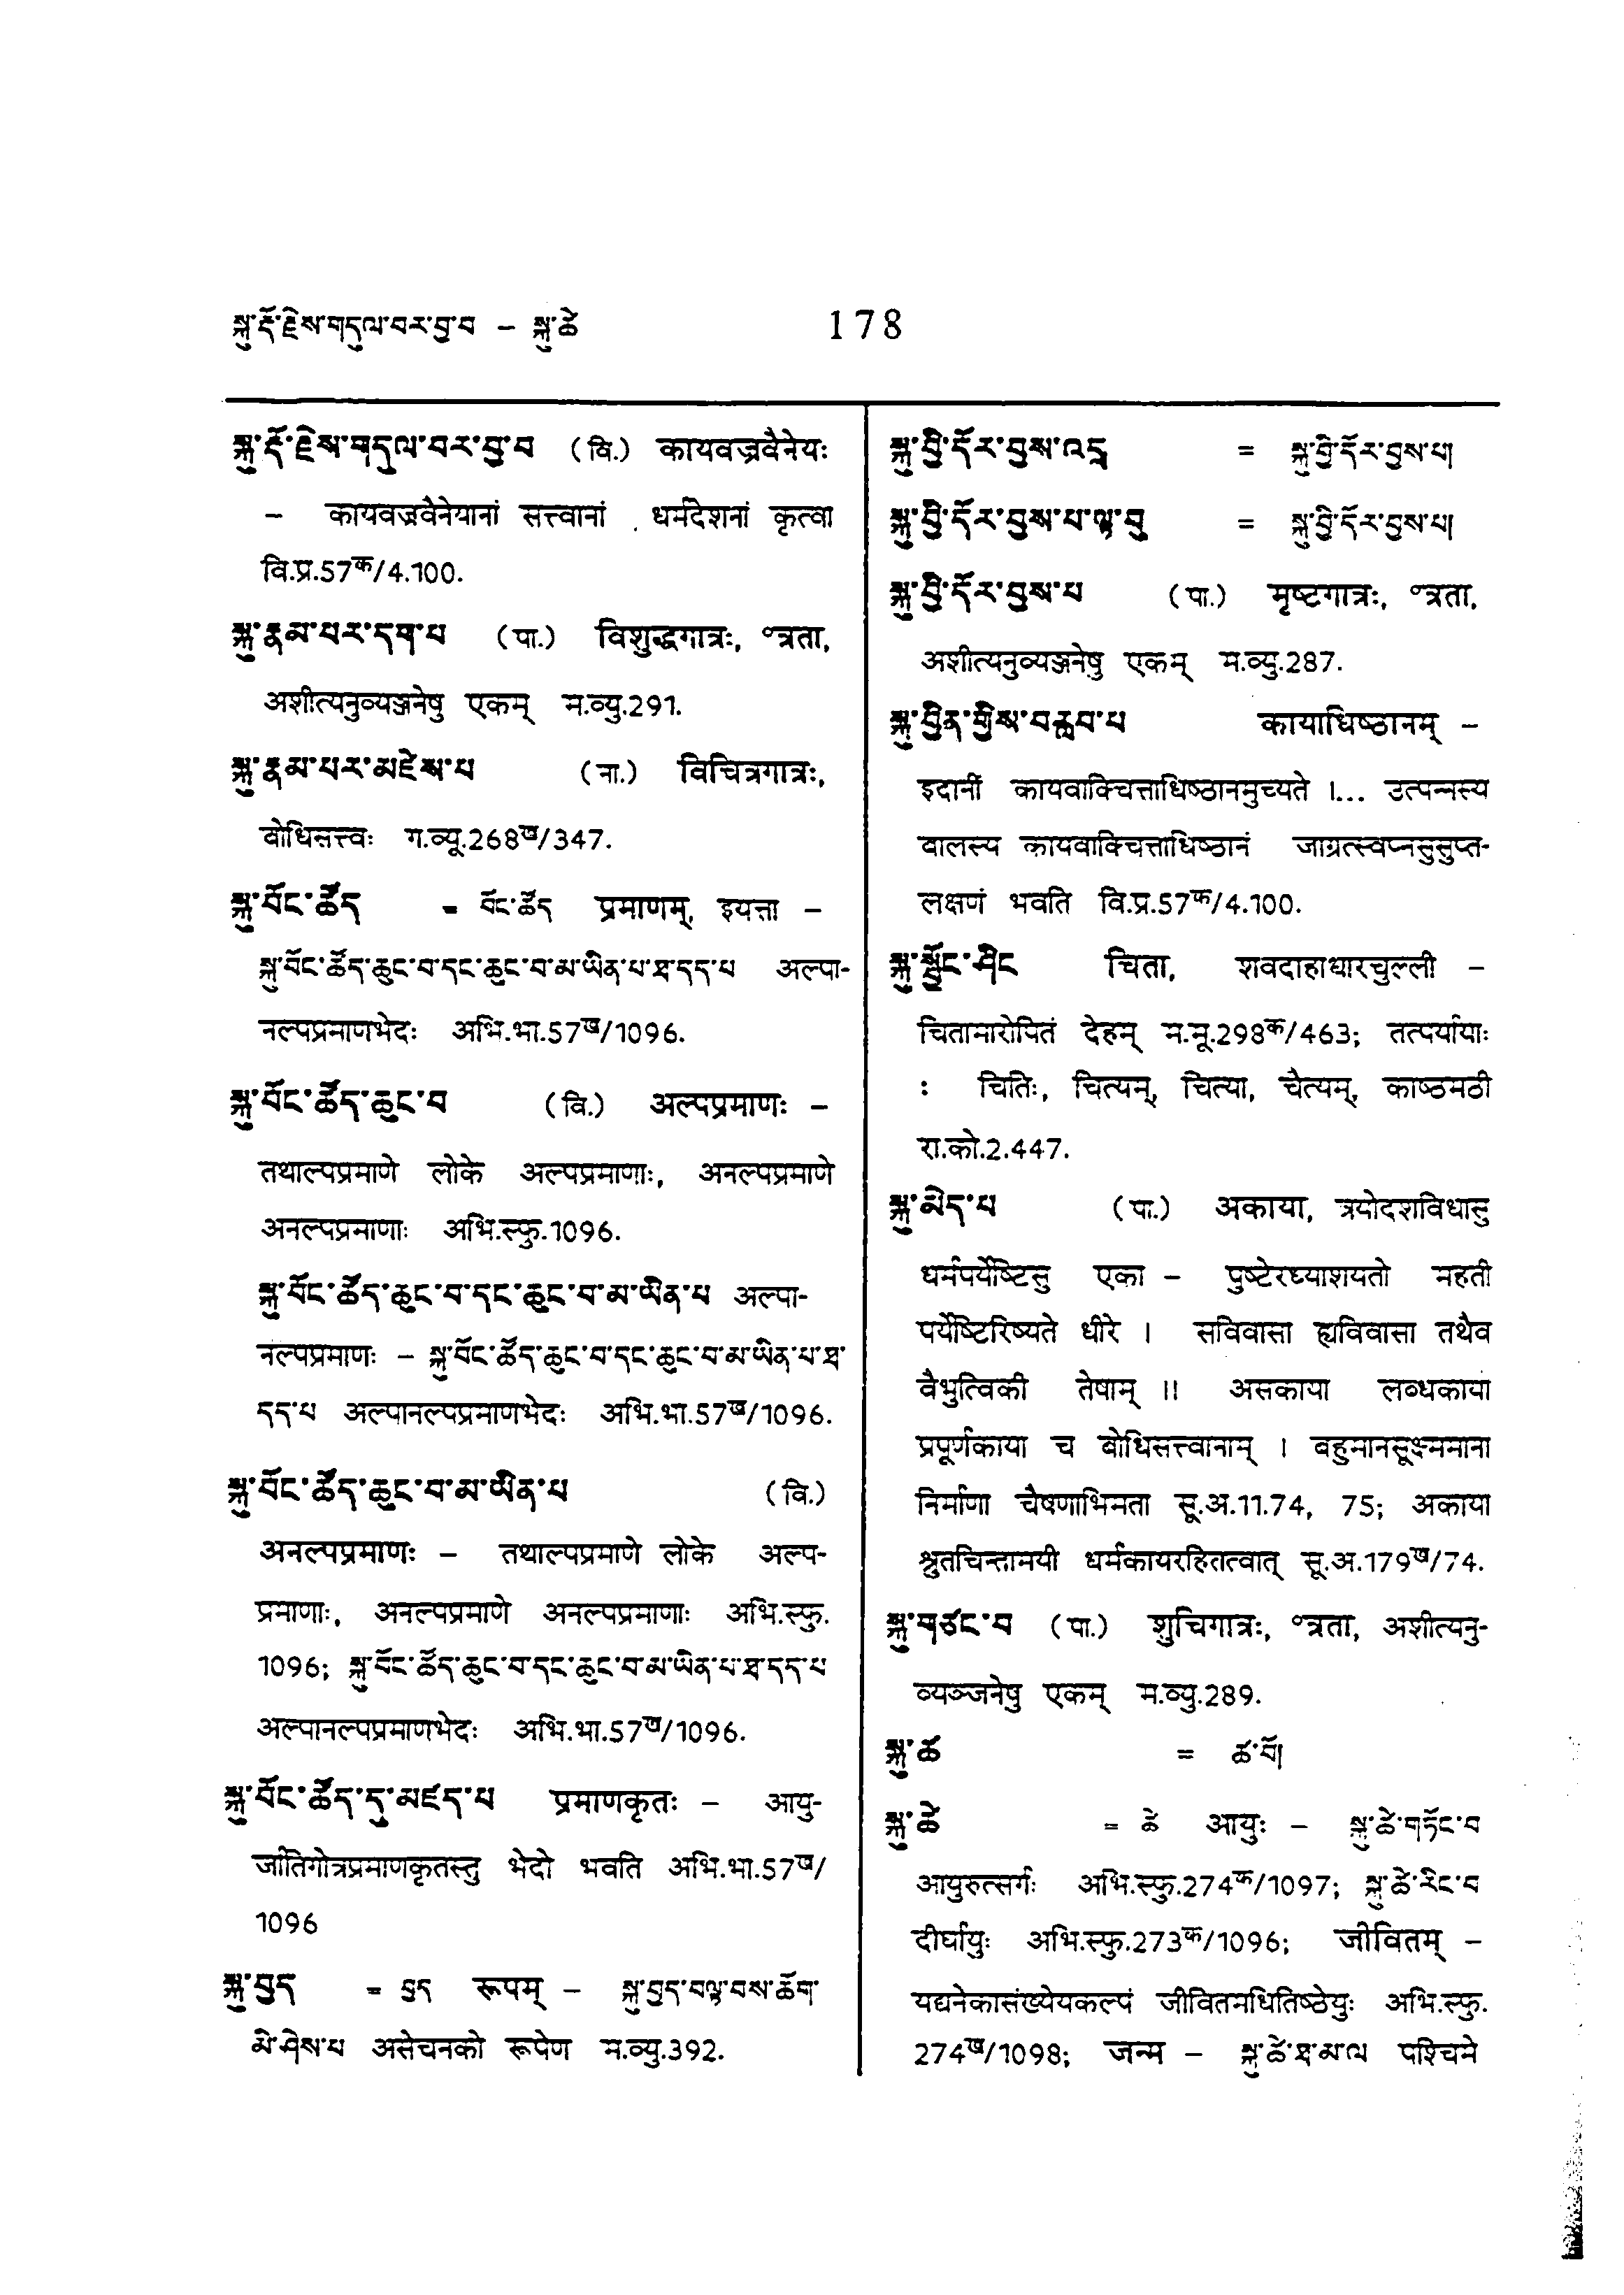 སྐུ་རྡོ་རྗེས་གདུལ་བར་བྱ་བ – སྐུ་ཚེ 178
སྐུ་རྡོ་རྗེས་གདུལ་བར་བྱ་བ (वि.) कायवज्रवैनेयः
– कायवज्रवैनेयानां सत्त्वानां धर्मदेशनां कृत्वा
वि.प्र.57क/4.100.
སྐུ་རྣམ་པར་དག་པ (पा.) विशुद्धगात्रः, ॰त्रता,
अशीत्यनुव्यञ्जनेषु एकम् म.व्यु.291.
སྐུ་རྣམ་པར་མཛེས་པ (ना.) विचित्रगात्रः,
बोधिसत्त्वः ग.व्यू.268ख/347.
སྐུ་བོང་ཚོད = བོང་ཚོད प्रमाणम्, इयत्ता –
སྐུ་བོང་ཚོད་ཆུང་བ་དང་ཆུང་བ་མ་ཡིན་པ་ཐ་དད་པ अल्पा-
नल्पप्रमाणभेदः अभि.भा.57ख/1096.
སྐུ་བོང་ཚོད་ཆུང་བ (वि.) अल्पप्रमाणः –
तथाल्पप्रमाणे लोके अल्पप्रमाणाः, अनल्पप्रमाणे
अनल्पप्रमाणाः अभि.स्फु.1096.
སྐུ་བོང་ཚོད་ཆུང་བ་དང་ཆུང་བ་མ་ཡིན་པ अल्पा-
नल्पप्रमाणः – སྐུ་བོང་ཚོད་ཆུང་བ་དང་ཆུང་བ་མ་ཡིན་པ་ཐ་
དད་པ अल्पानल्पप्रमाणभेदः अभि.भा.57ख/1096.
སྐུ་བོང་ཚོད་ཆུང་བ་མ་ཡིན་པ (वि.)
अनल्पप्रमाणः – तथाल्पप्रमाणे लोके अल्प-
प्रमाणाः, अनल्पप्रमाणे अनल्पप्रमाणाः अभि.स्फु.
1096; སྐུ་བོང་ཚོད་ཆུང་བ་དང་ཆུང་བ་མ་ཡིན་པ་ཐ་དད་པ
अल्पानल्पप्रमाणभेदः अभि.भा.57ख/1096.
སྐུ་བོང་ཚོད་དུ་མཛད་པ प्रमाणकृतः – आयु-
र्जातिगोत्रप्रमाणकृतस्तु भेदो भवति अभि.भा.57ख/
1096
སྐུ་བྱད = བྱད रूपम् – སྐུ་བྱད་བལྟ་བས་ཆོག་
མི་ཤེས་པ असेचनको रूपेण म.व्यु.392.
སྐུ་བྱི་དོར་བྱས་འདྲ = སྐུ་བྱི་དོར་བྱས་པ།
སྐུ་བྱི་དོར་བྱས་པ་ལྟ་བུ = སྐུ་བྱི་དོར་བྱས་པ།
སྐུ་བྱི་དོར་བྱས་པ (पा.) मृष्टगात्रः, ॰त्रता,
अशीत्यनुव्यञ्जनेषु एकम् म.व्यु.287.
སྐུ་བྱིན་གྱིས་བརླབ་པ कायाधिष्ठानम् –
इदानीं कायवाक्चित्ताधिष्ठानमुच्यते ।... उत्पन्नस्य
बालस्य कायवाक्चित्ताधिष्ठानं जाग्रत्स्वप्नसुसुप्त-
लक्षणं भवति वि.प्र.57क/4.100.
སྐུ་སྦྱོང་ཤིང चिता, शवदाहाधारचुल्ली –
चितामारोपितं देहम् म.मू.298क/463; तत्पर्यायाः
: चितिः, चित्यम्, चित्या, चैत्यम्, काष्ठमठी
रा.को.2.447.
སྐུ་མེད་པ (पा.) अकाया, त्रयोदशविधासु
धर्मपर्येष्टिसु एका – पुष्टेरध्याशयतो महती
पर्येष्टिरिष्यते धीरे । सविवासा ह्यविवासा तथैव
वैभुत्विकी तेषाम् ॥ असकाया लब्धकाया
प्रपूर्णकाया च बोधिसत्त्वानाम् । बहुमानसूक्ष्ममाना
निर्माणा चैषणाभिमता सू.अ.11.74, 75; अकाया
श्रुतचिन्तामयी धर्मकायरहितत्वात् सू.अ.179ख/74.
སྐུ་གཙང་བ (पा.) शुचिगात्रः, ॰त्रता, अशीत्यनु-
व्यञ्जनेषु एकम् म.व्यु.289.
སྐུ་ཚ = ཚ་བོ།
སྐུ་ཚེ = ཚེ आयुः – སྐུ་ཚེ་གཏོང་བ
आयुरुत्सर्गः अभि.स्फु.274क/1097; སྐུ་ཚེ་རིང་བ
दीर्घायुः अभि.स्फु.273क/1096; जीवितम् –
यद्यनेकासंख्येयकल्पं जीवितमधितिष्ठेयुः अभि.स्फु.
274ख/1098; जन्म – སྐུ་ཚེ་ཐ་མ་ལ पश्चिमे